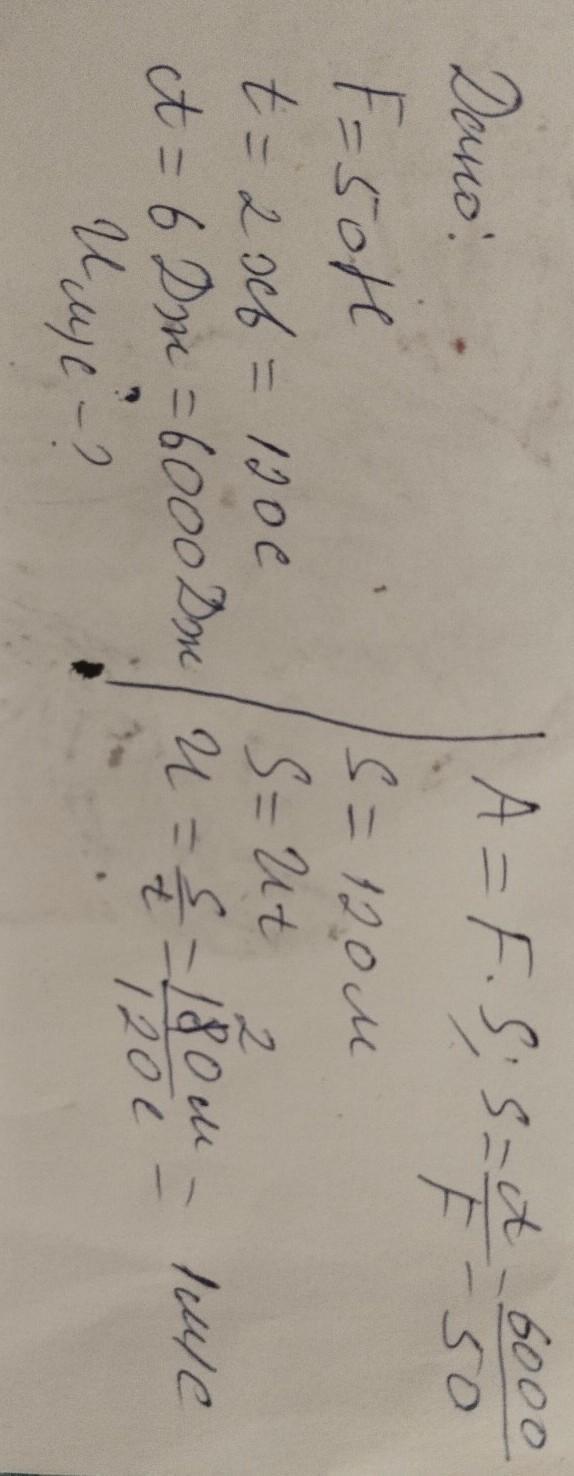 Дано:
F = 50 Н
t = 2 хв = 120 с
A = 6 Дж = 6000 Дж
U м/с - ?
A = F · S; S = A/F = 6000/50
S = 120 м
S = Ut
U = S/t = 120 м/120 с = 1 м/с